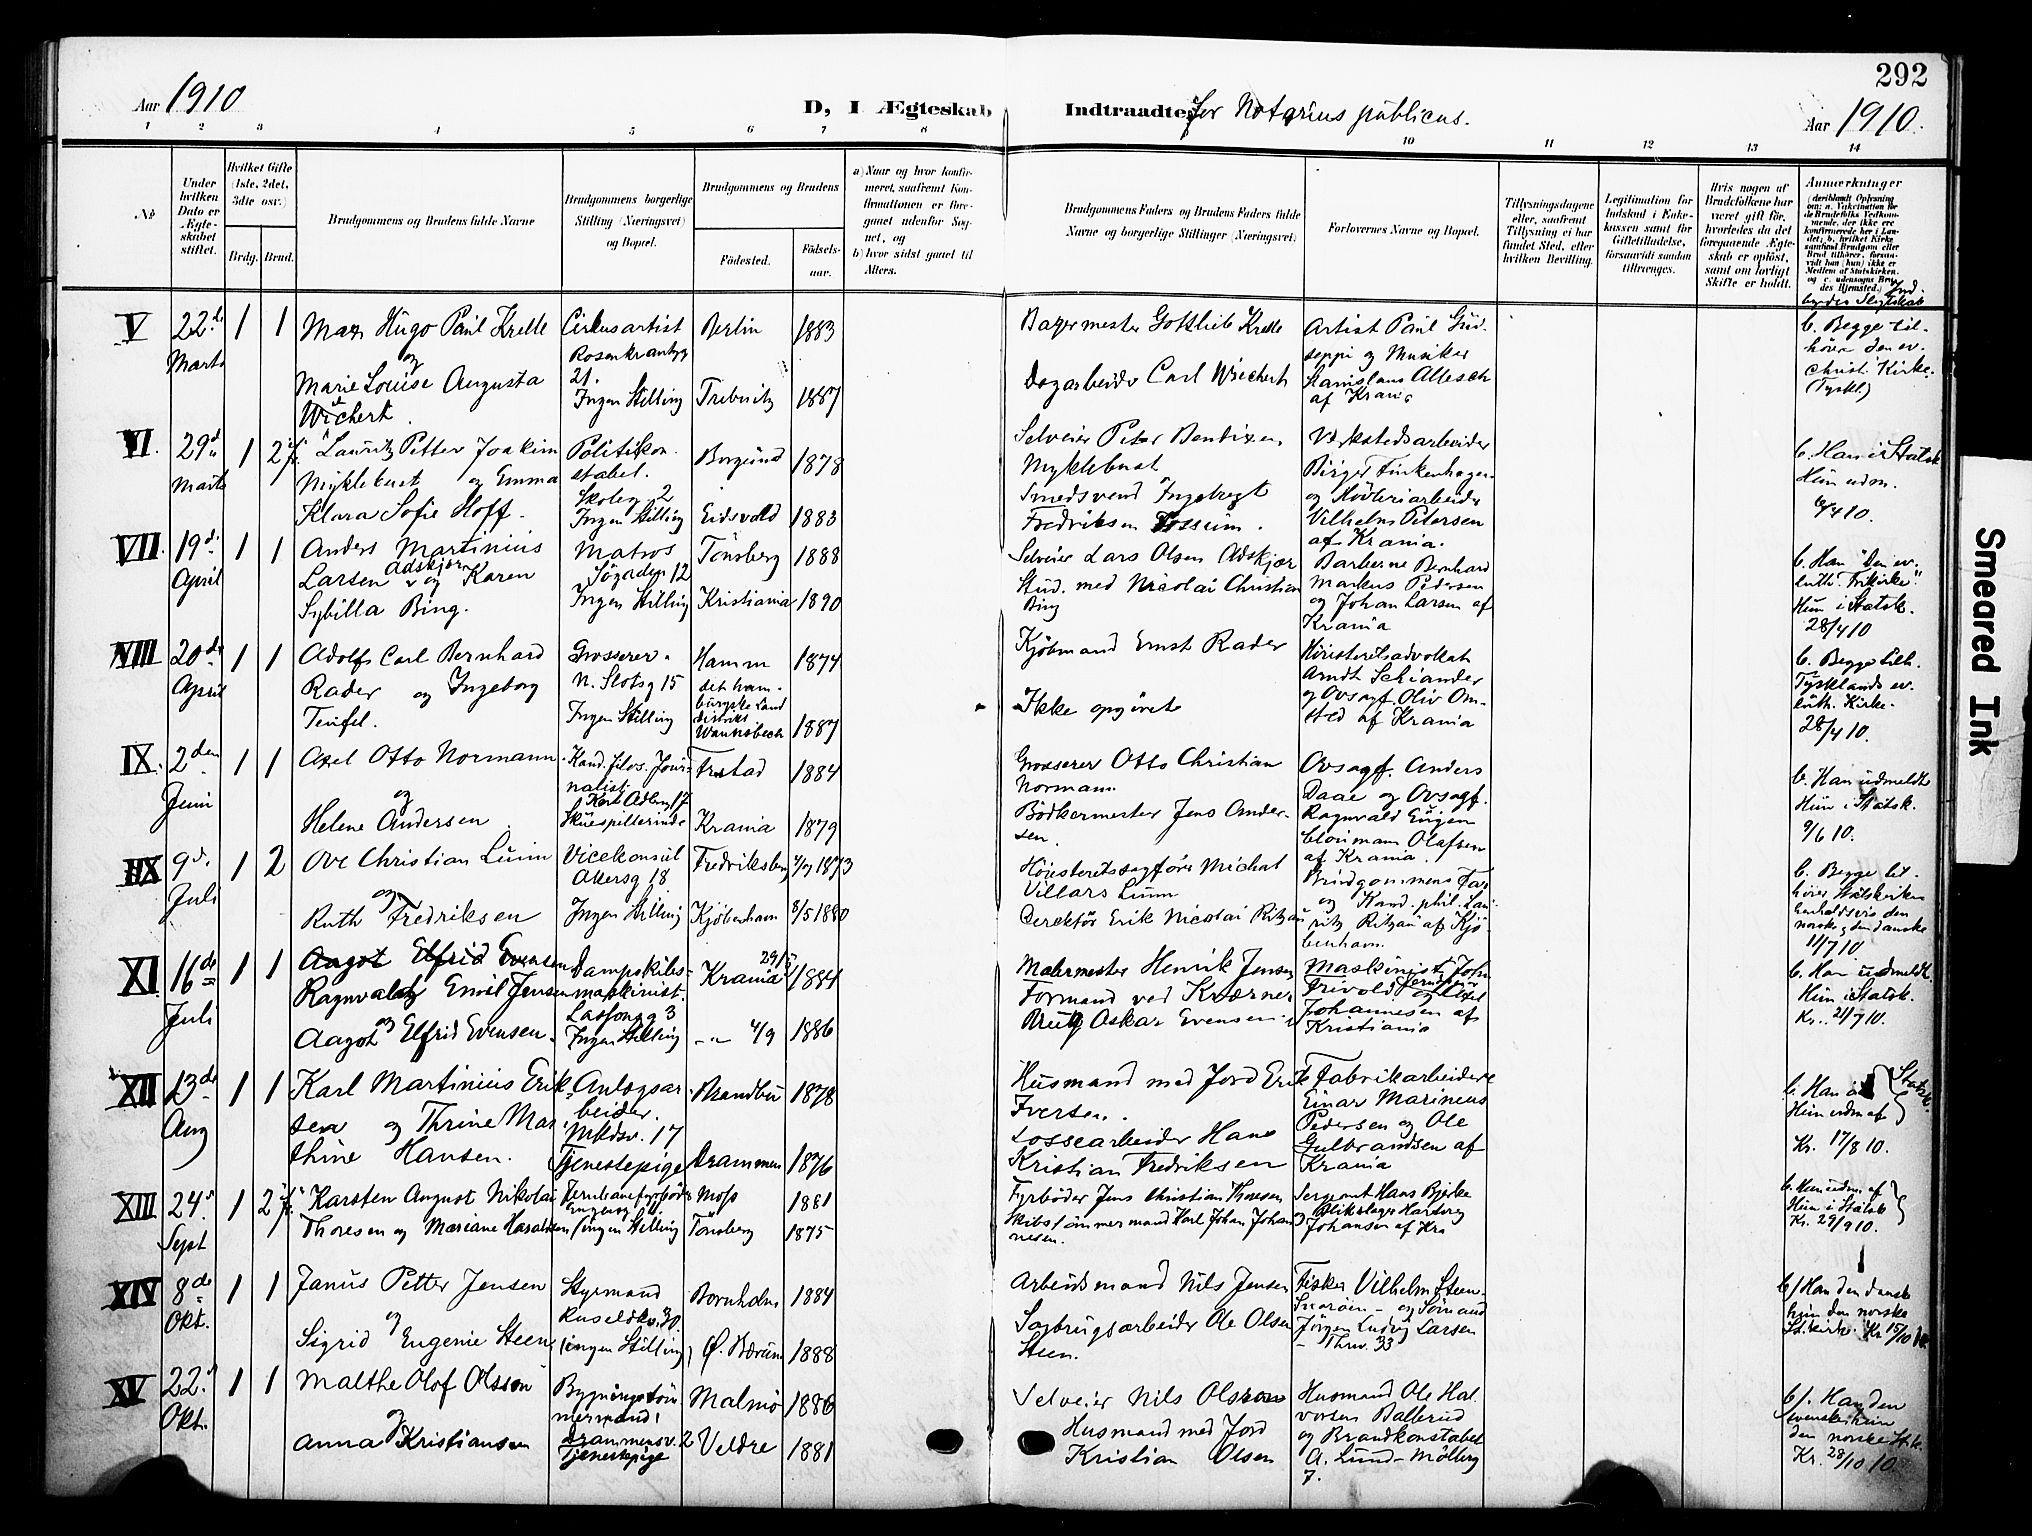 292
Aar 1910
D, I Ægteskab Indtraadte for Notarius publicus.
Aar 1910.
1 2 3 4 5 6 7 8 10 11 12 13 14
No
Under hvilken Dato er Ægteskabet stiftet.
Hvilket Gifte (1ste, 2det, 3die osv.)
Brdg. Brud.
Brudgommens og Brudens fulde Navne
Brudgommens borgerlige Stilling (Næringsvei) og Bopæl.
Brudgommens og Brudens
Fødested.
Fødselsaar.
a) Naar og hvor konfirmeret, saafremt Konfirmationen er foregaaet udenfor Sognet, og
b) hvor sidst gaaet til Alters.
Brudgommens Faders og Brudens Faders fulde Navne og borgerlige Stillinger (Næringsvei)
Forlovernes Navne og Bopæl.
Tillysningsdagene eller, saafremt Tillysning ei har fundet Sted, efter hvilken Bevilling.
Legitimation for Indskud i Enkekassen samt for Giftetilladelse, forsaavidt saadan tiltrænges.
Hvis nogen af Brudefolkene har været gift før, hvorledes da det foregaaende Ægteskab er opløst, samt om lovligt Skifte er holdt.
Anmærkninger
V 22d Marts 1 1
Max Hugo Paul Krelle og Marie Louise Augusta Wiechert.
Cirkusartist Rosenkrantzg 21. Ingen Stilling
Berlin 1883
Trebnitz 1887
Bagermester Gottlieb Krelle
Dagarbeider Carl Wiechert
Artist Paul Guiseppi og Musiker Stanislaus Allesch af Krania
b. Begge tilhører den ev. christ. Kirke. (Tyskl.)
VI. 29d Marts 1 2
Lauritz Petter Joakim Myklebust og Emma Klara Sofie Hoff.
Politikonstabel. Skoleg 2 Ingen Stilling
Borgund 1878
Eidsvold 1883
Selveier Peter Bendixen Myklebust
Smedsvend Ingebregt Fredriksen Fossum.
Verkstedsarbeider Birger Finkenhagen og Høvleriarbeider Vilhelm Petersen af Krania.
b. Han i Statsk. Hun udm.
VII. 19d. April 1 1
Anders Martinius Larsen Adskjær og Karen Sybilla Bing.
Matros Søgaden 12 Ingen Stilling
Tønsberg 1888
Kristiania 1890
Selveier Lars Olsen Adskjær
Stud. med Nicolai Christian Bing
Barberne Bernhard Markus Pedersen og Johan Larsen af Krania
b. Han "den ev. luth. Frikirke". Hun i Statsk. 28/4 10
VIII 20de April 1 1
Adolf Carl Bernhard Rader og Ingeborg Teufel.
Grosserer. N. Slotsg 15 Ingen Stilling
Hamm 1874
det hamburgske Land distrikt Wannsbech 1887
Kjøbmand Ernst Rader
Ikke opgivet
Høiesteretsadvokat Arndt Schiander og Ovsagf. Oliv Omsted af Krania
b. Begge tilh. Tysklands ev. luth. Kirke. 28/4 10.
IX. 2den Juni 1 1
Axel Otto Normann og Helene Andersen
Kand. filos. Journalist. Karl Adlersg 17 Skuespillerinde
Frstad 1884
Krania 1879
Grosserer Otto Christian Normann.
Bødkermester Jens Andersen.
Ovsagf. Anders Daae og Ovsagf. Ragnvald Eugen Cloumann Olafsen af Krania.
b. Han udmeldt Hun i Statsk. 9/6 10.
IIX 9d. Juli 1 2
Ove Christian Lunn og Ruth Fredriksen
Vicekonsul Akersg 18 Ingen Stilling
Fredriksberg 1873
Kjøbenhavn 8/5 1880
Høiesteretssagfører Michal Villars Lunn
Derektør Erik Nicolai Ritzau
Brudgommens Far og Kand. phil. Lauritz Ritzau af Kjøbenhavn.
b. Begge tilhører Statskirken henholdsvis den norske og den danske 11/7 10
XI 16de Juli 1 1
Aagot Elfrid Evensen
Ragnvald Emil Jensen og Aagot Elfrid Evensen.
Dampskibsmaskinist. Lassonsg 3 Ingen Stilling
Krania 1884
-"- 4/9 1886
Malermester Henrik Jensen
Formand ved Kværner Brug Oskar Evensen.
Maskinist John Trivold Jerndahl og Axel Johannesen af Kristiania
b. Han udmeldt. Hun i Statsk. Kr. 21/7 10.
XII 13de Aug 1 1
Karl Martinius Eriksen og Thrine Mathine Hansen.
Anlægsarbeider. Mkdsv. 17 Tjenestepige
Brandbu 1878
Drammen 1876
Husmand med Jord Erik Iversen.
Lossearbeider Hans Kristian Fredriksen
Fabrikarbeidere Einar Marineus Pedersen og Ole Gulbrandsen af Krania
b. Han i Hun udm af Statsk. Kr. 17/8 10.
XIII 24d Sept 1 2
Karsten August Nikolai Thoresen og Mariane Haraldsen
Jernbanefyrbøder Ingen Stilling
Moss 1881
Tønsberg 1875
Fyrbøder Jens Christian Thoresen
Skibstømmermand Karl Johan Johannesen.
Sergeant Hans Bjerke og Blikslager Harding Johansen af Kra
b. Han udm. af Hun i Statsk Kr. 29/9 10.
XIV 8de Okt. 1 1
Janus Petter Jensen og Sigrid Eugenie Steen
Styrmand Ruseløkv. 30 Ingen Stilling
Bornholm 1884
Ø. Bærum 1888
Arbeidsmand Nils Jensen
Sagbrugsarbeider Ole Olsen Steen.
Fisker Vilhelm Steen. Snarøen - og Sømand Jørgen Ludvig Larsen - Thrv. 33
b/ Han den dansk hun den norske Stkirk. Kr 15/10 10.
XV 22. Okt. 1 1
Malthe Olof Olsson og Anna Kristiansen
Bygningstømmermand, Drammensv. 2 Tjenestepige
Malmø 1886
Veldre 1881
Selveier Nils Olsson
Husmand med Jord Kristian Olsen
Husmand Ole Halvorsen Ballerud og Brandkonstabel A. Lund - Møllerg 7.
b/. Han den svenske hun den norske Stk. Kr. 28/10 10.
Smeared Ink